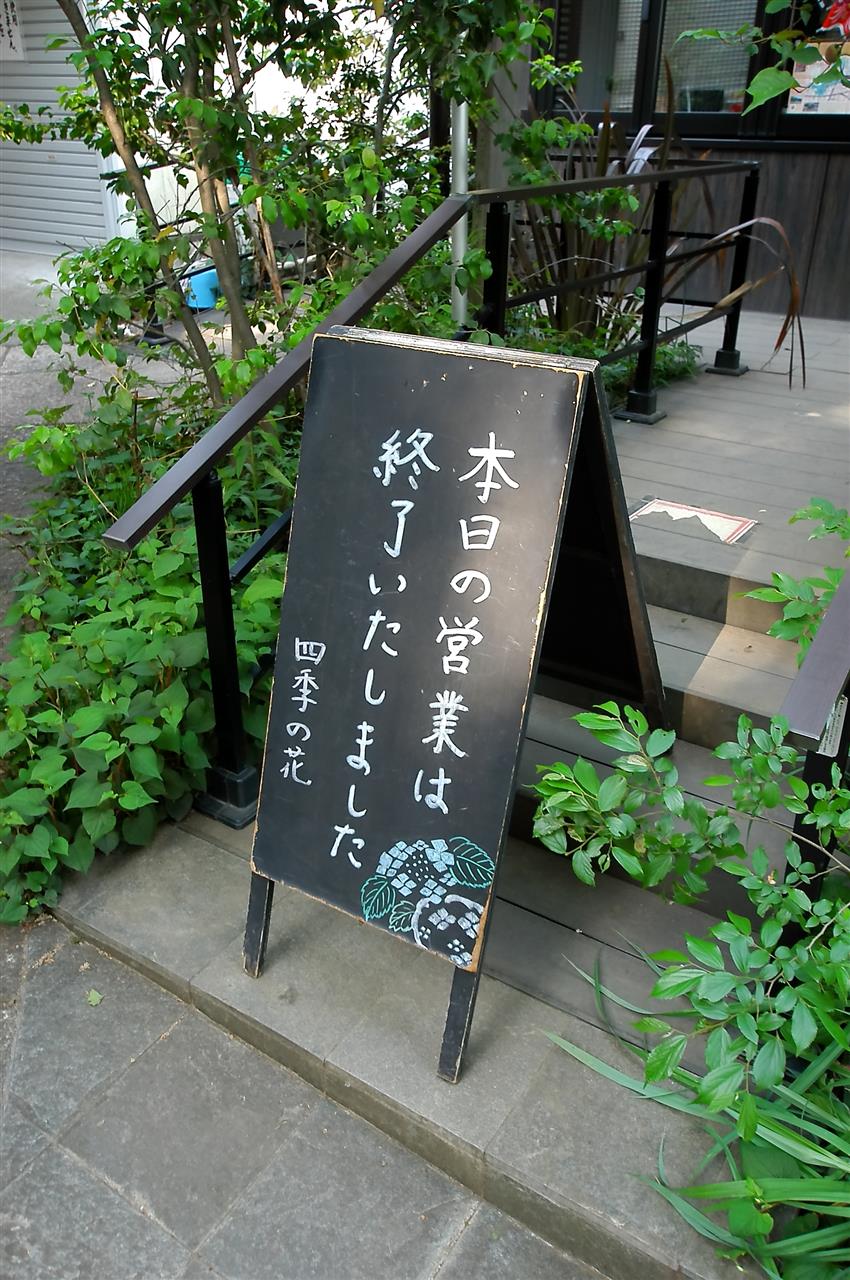 本日の営業は
終了いたしました
四季の花